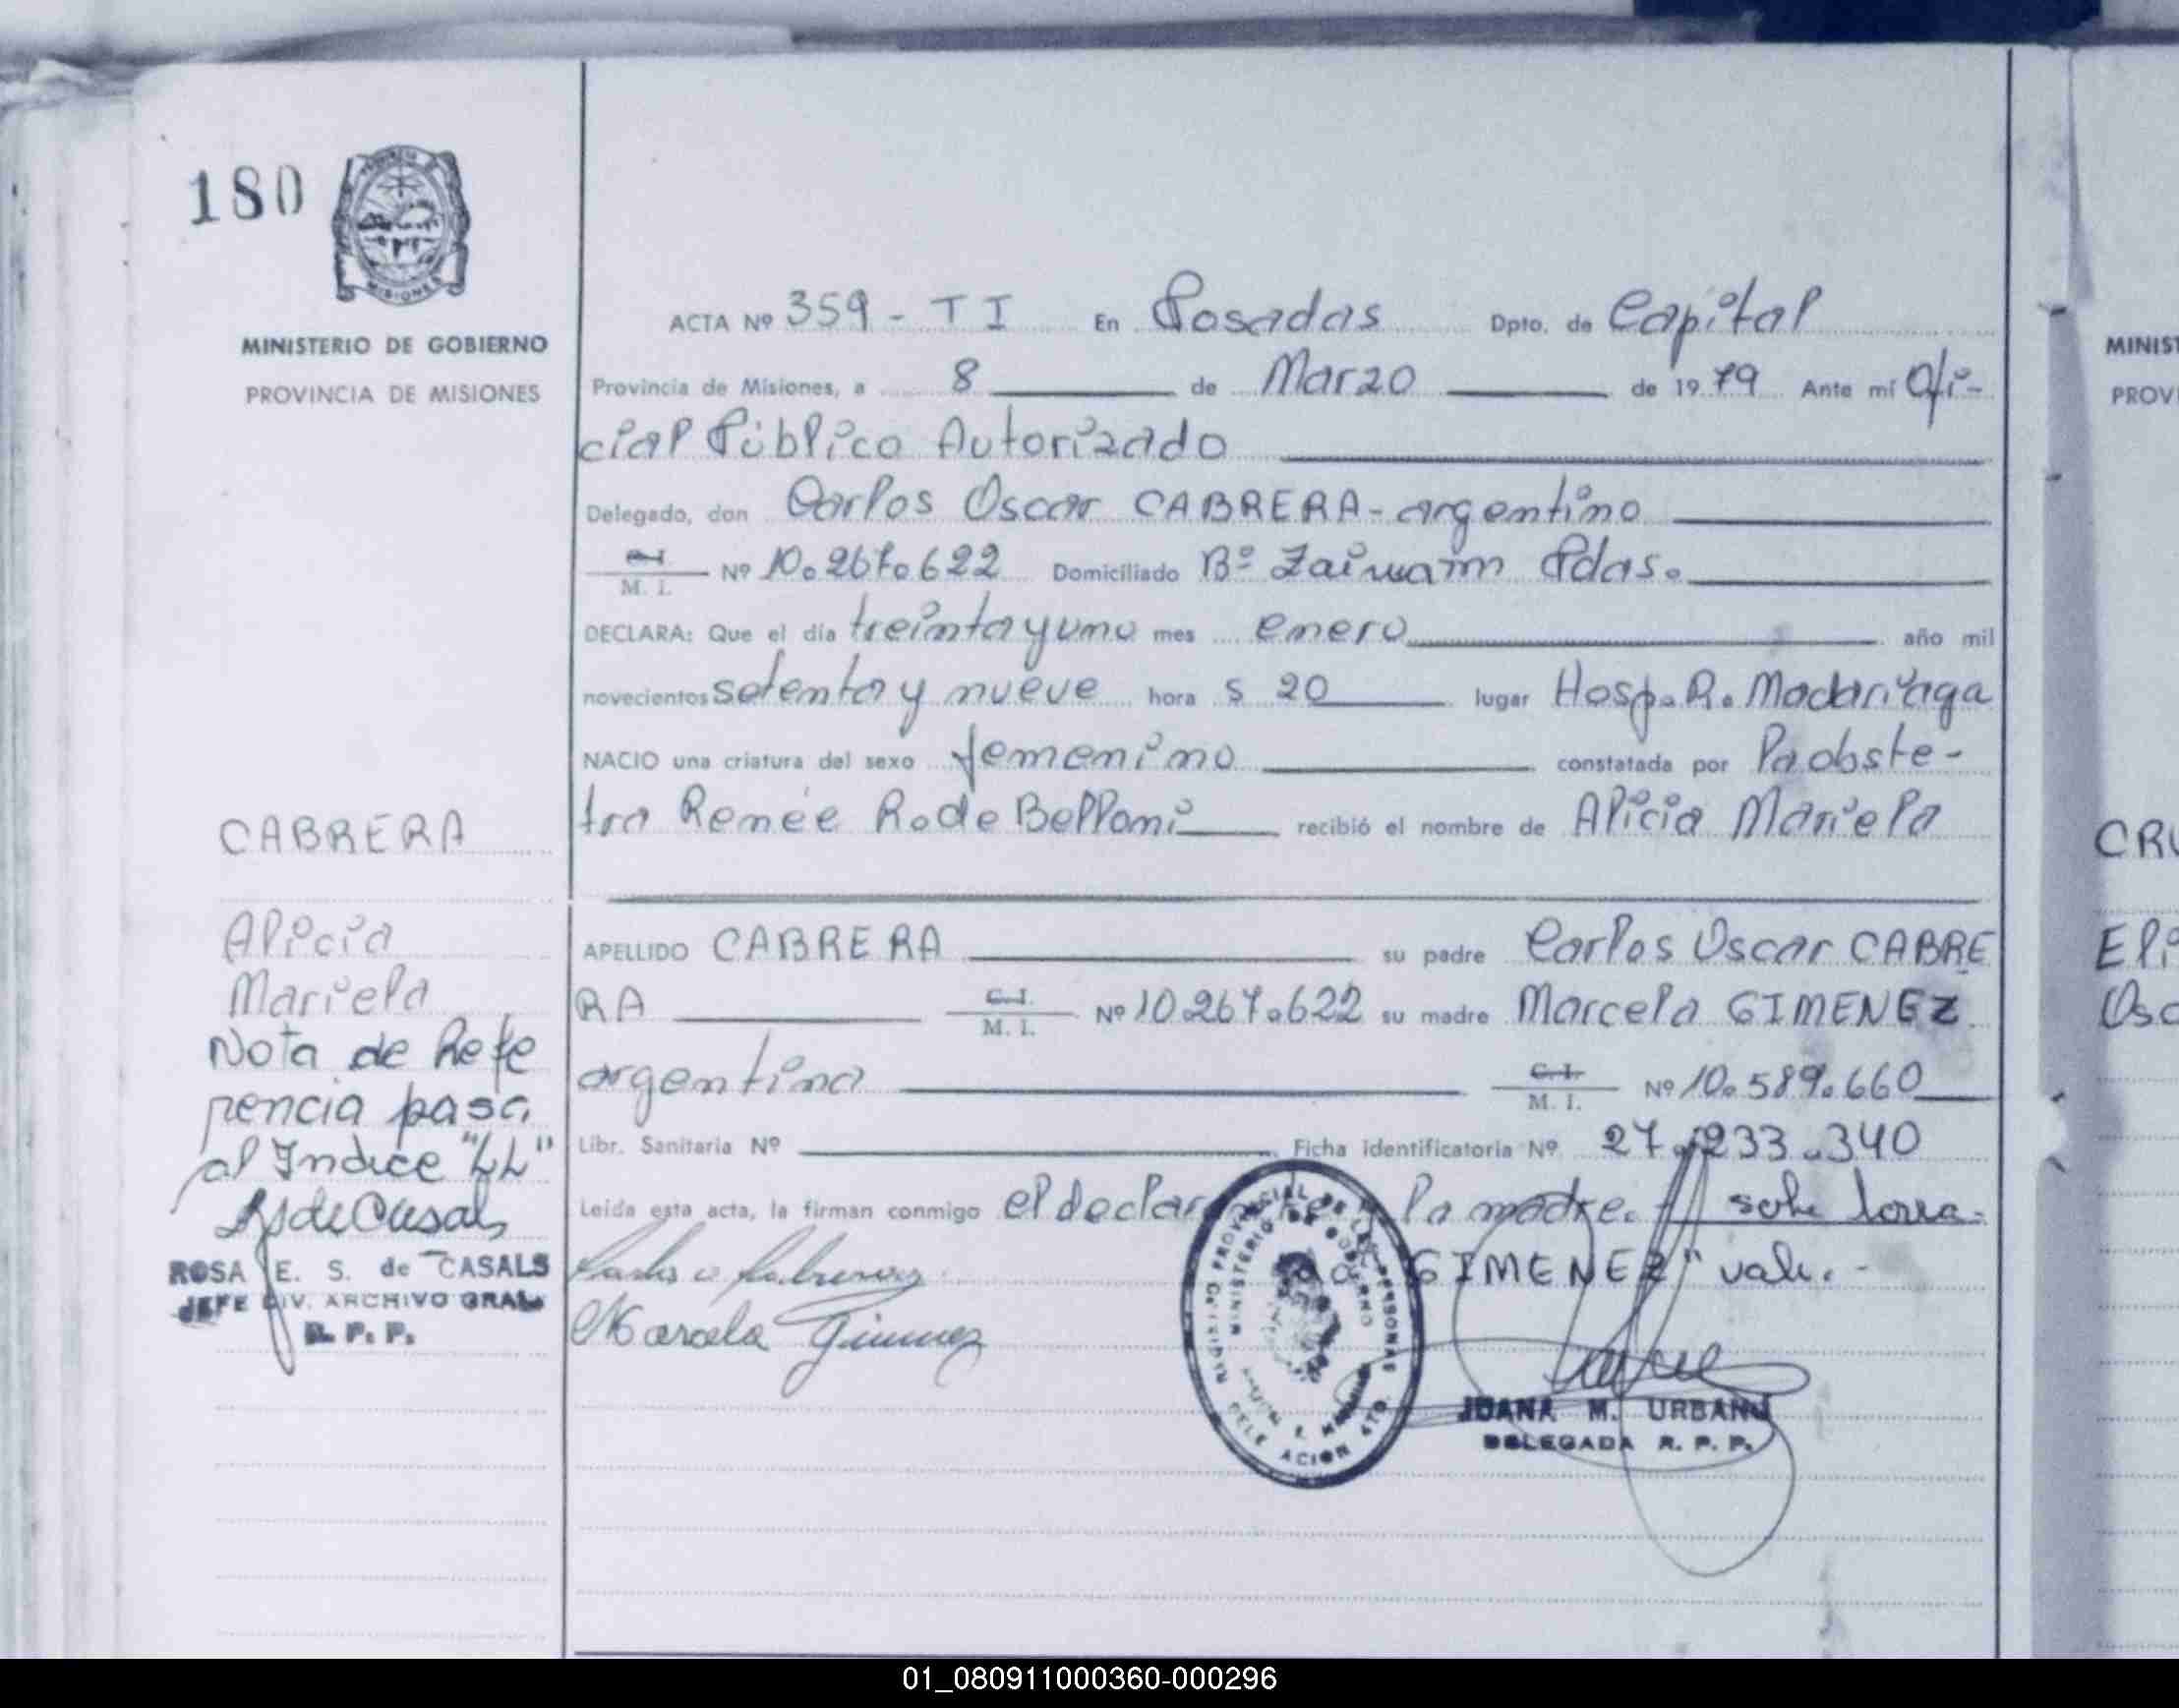 180
MISIONES
MINISTERIO DE GOBIERNO
PROVINCIA DE MISIONES
ACTA Nº 359 - T I En Posadas Dpto. de Capital
Provincia de Misiones, a 8 de Marzo de 1979 Ante mí Ofi-
cial Público Autorizado
Delegado, don Carlos Oscar CABRERA - argentino
C.I.
M. I. Nº 10.267.622 Domiciliado Bº Pdas.
DECLARA: Que el día treinta y uno mes enero año mil
novecientos setenta y nueve hora s 20 lugar Hosp. R. Madariaga
NACIO una criatura del sexo femenino constatada por la obste-
tra Renée Rode Belloni recibió el nombre de Alicia Mariela
CABRERA
Alicia
Mariela
Nota de Refe
rencia pasa
al Indice "LL"
ROSA E. S. de CASALS
JEFE DIV. ARCHIVO GRAL.
R. P. P.
APELLIDO CABRERA su padre Carlos Oscar CABRE
RA C.I. M. I. Nº 10.267.622 su madre Marcela GIMENEZ
argentina C.I. M. I. Nº 10.589.660
Libr. Sanitaria Nº Ficha identificatoria Nº 27.233.340
Leída esta acta, la firman conmigo el declar la madre. sobre
GIMENEZ" vale.-
Marcela Gimenez
REGISTRO PROVINCIAL DE LAS PERSONAS
MINISTERIO DE GOBIERNO
JUANA M. URBANO
DELEGADA R. P. P.
MINIST
PROVI
CRU
Eli
Osc
01_080911000360-000296